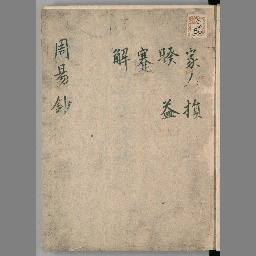 家人 損
睽 益
蹇
解
周易鈔